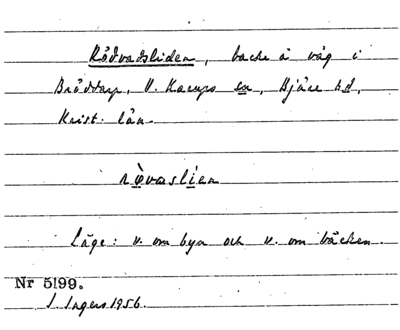 Rådvadsliden, backe å väg i
Bröddarp, V. Karups sn, Bjäre hd,
Krist. län.
rò̱vasli̱en
Läge: v. om byn och v. om bäcken.
Nr 5199.
I. Ingers 1956.